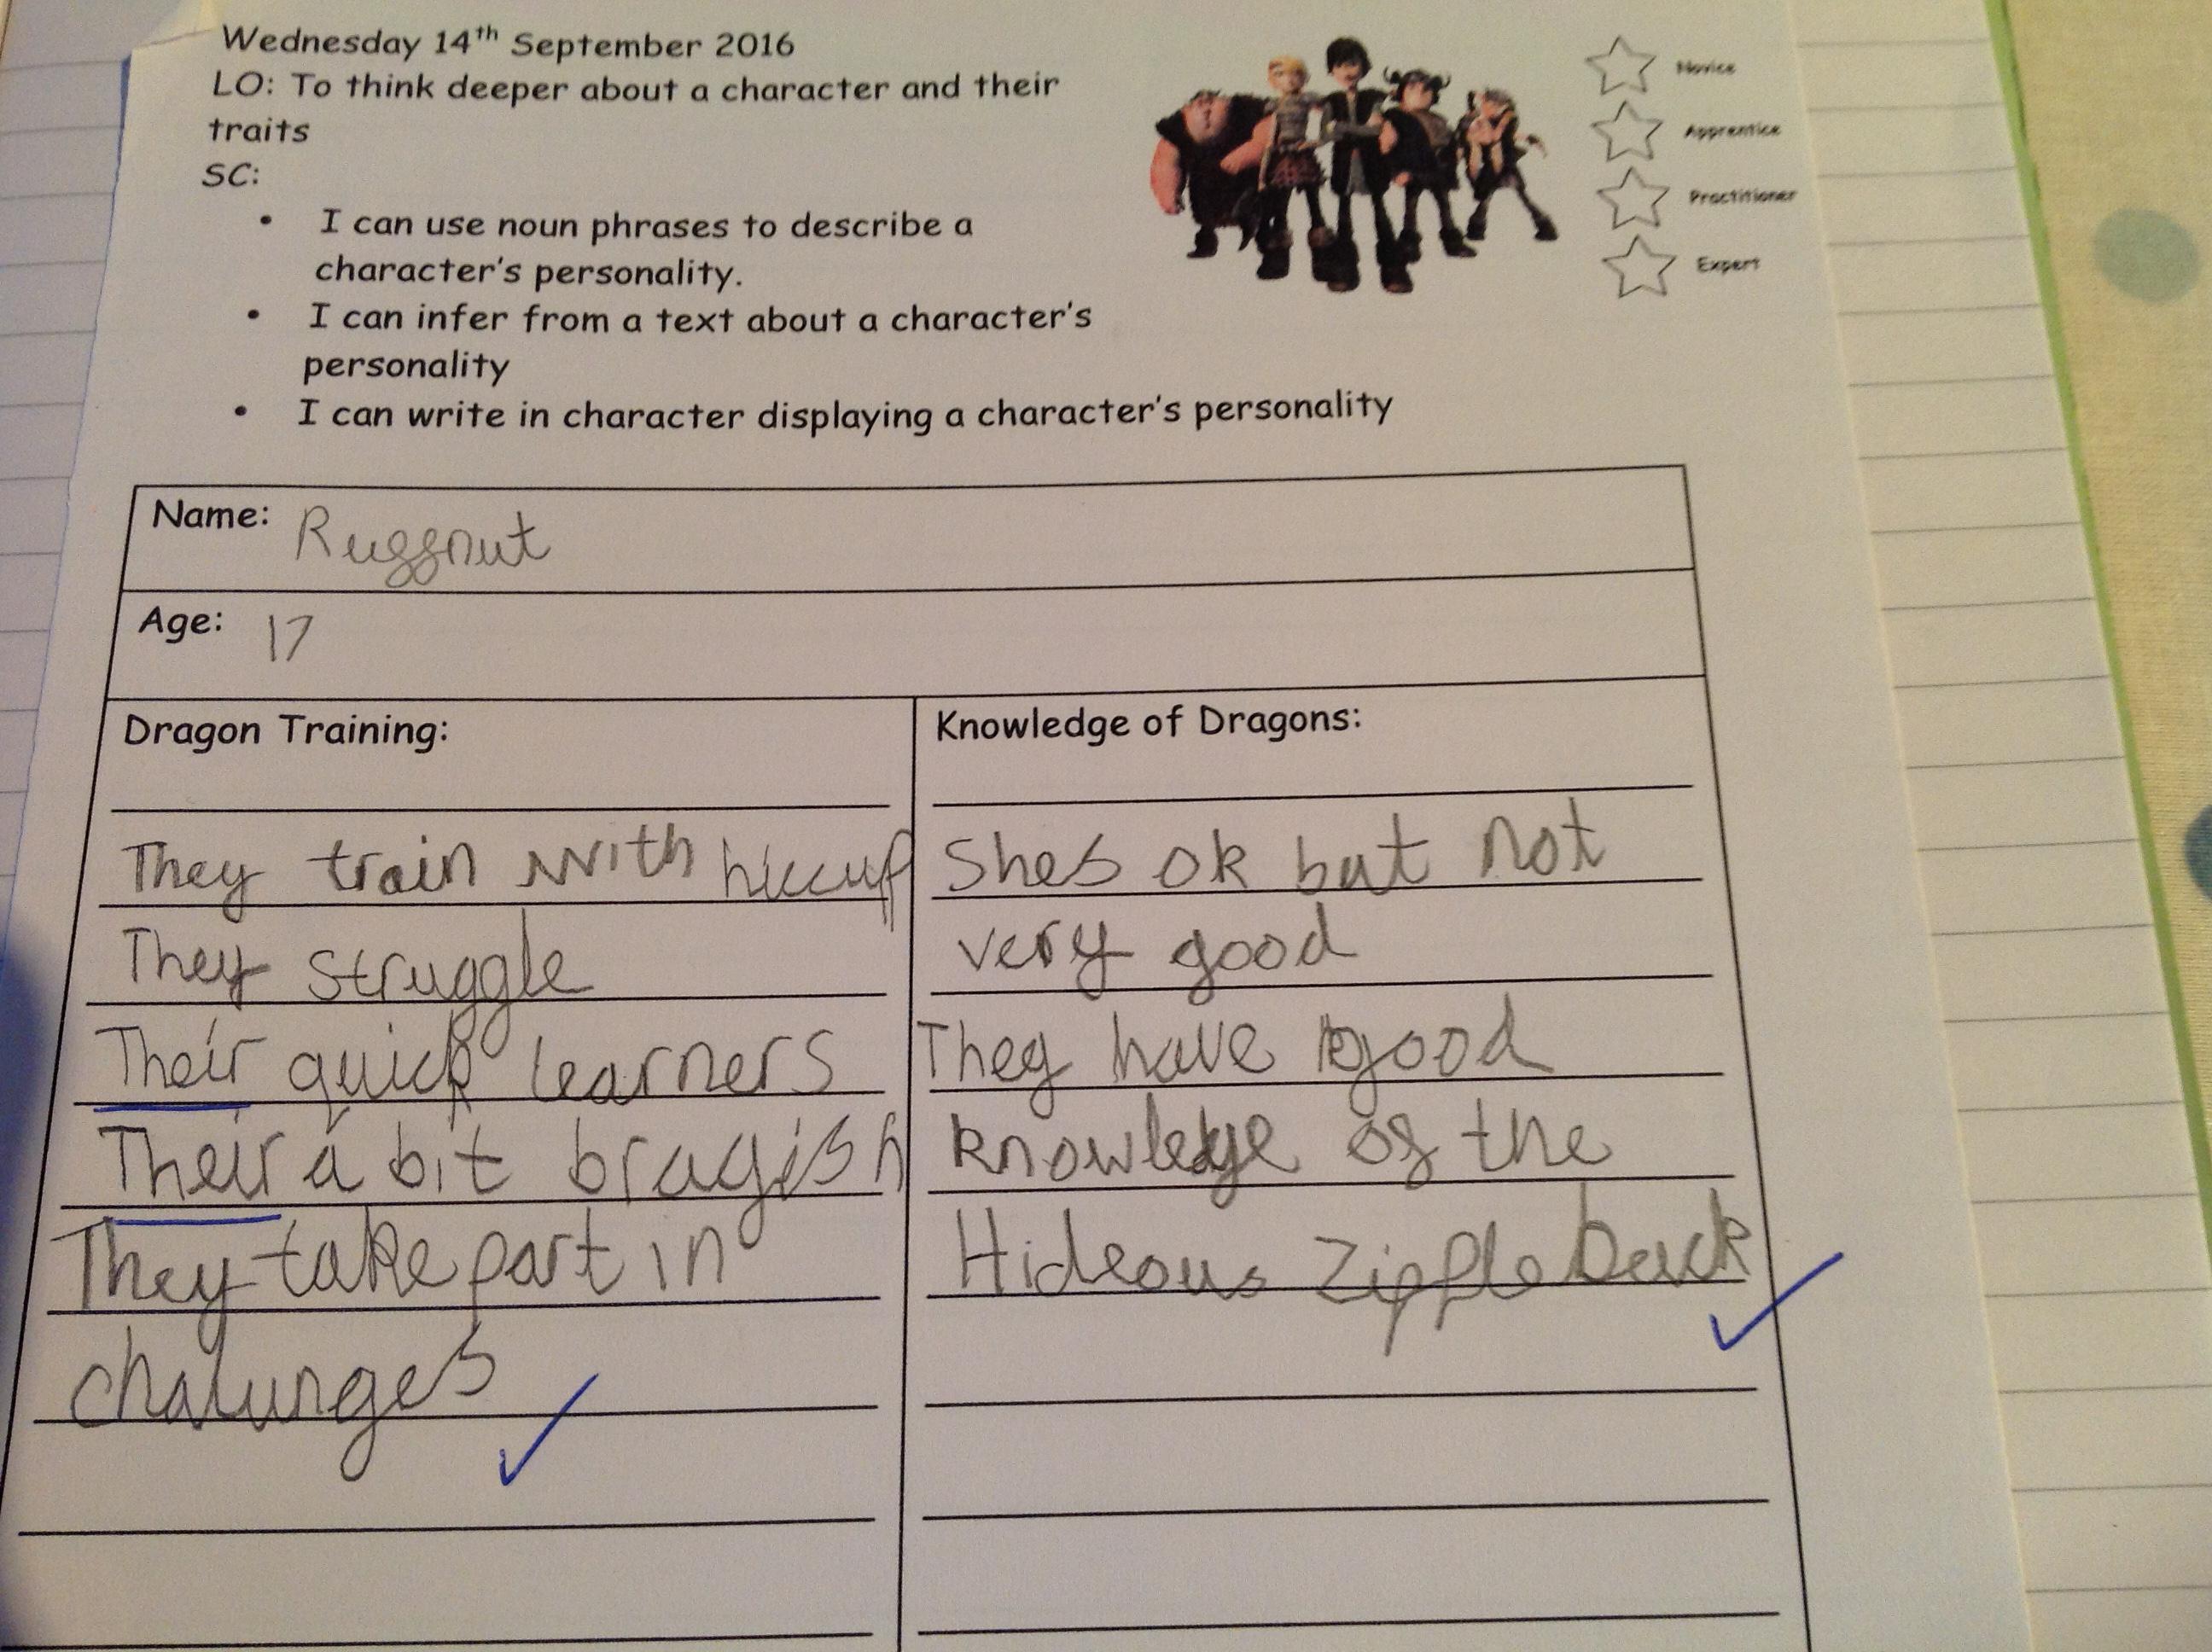 Wednesday 14th September 2016
LO: To think deeper about a character and their
traits
SC:
• I can use noun phrases to describe a
character's personality.
• I can infer from a text about a character's
personality
• I can write in character displaying a character's personality
Novice
Apprentice
Practitioner
Expert
Name: Ruffnut
Age: 17
Dragon Training:
They train with hiccup
They struggle
Their quick learners
Their a bit bragish
They take part in
chalunges
Knowledge of Dragons:
Shes ok but not
very good
They have good
knowledge of the
Hideous Zippleback